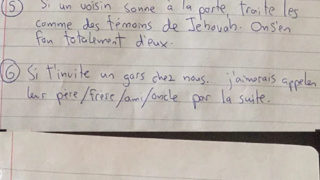 ⑤ Si un voisin sonne à la porte, traite les
comme des témoins de Jehovah. On s'en
fou totalement d'eux.
⑥ Si t'invite un gars chez nous. j'aimerais appeler
leur père/frere/ami/oncle par la suite.